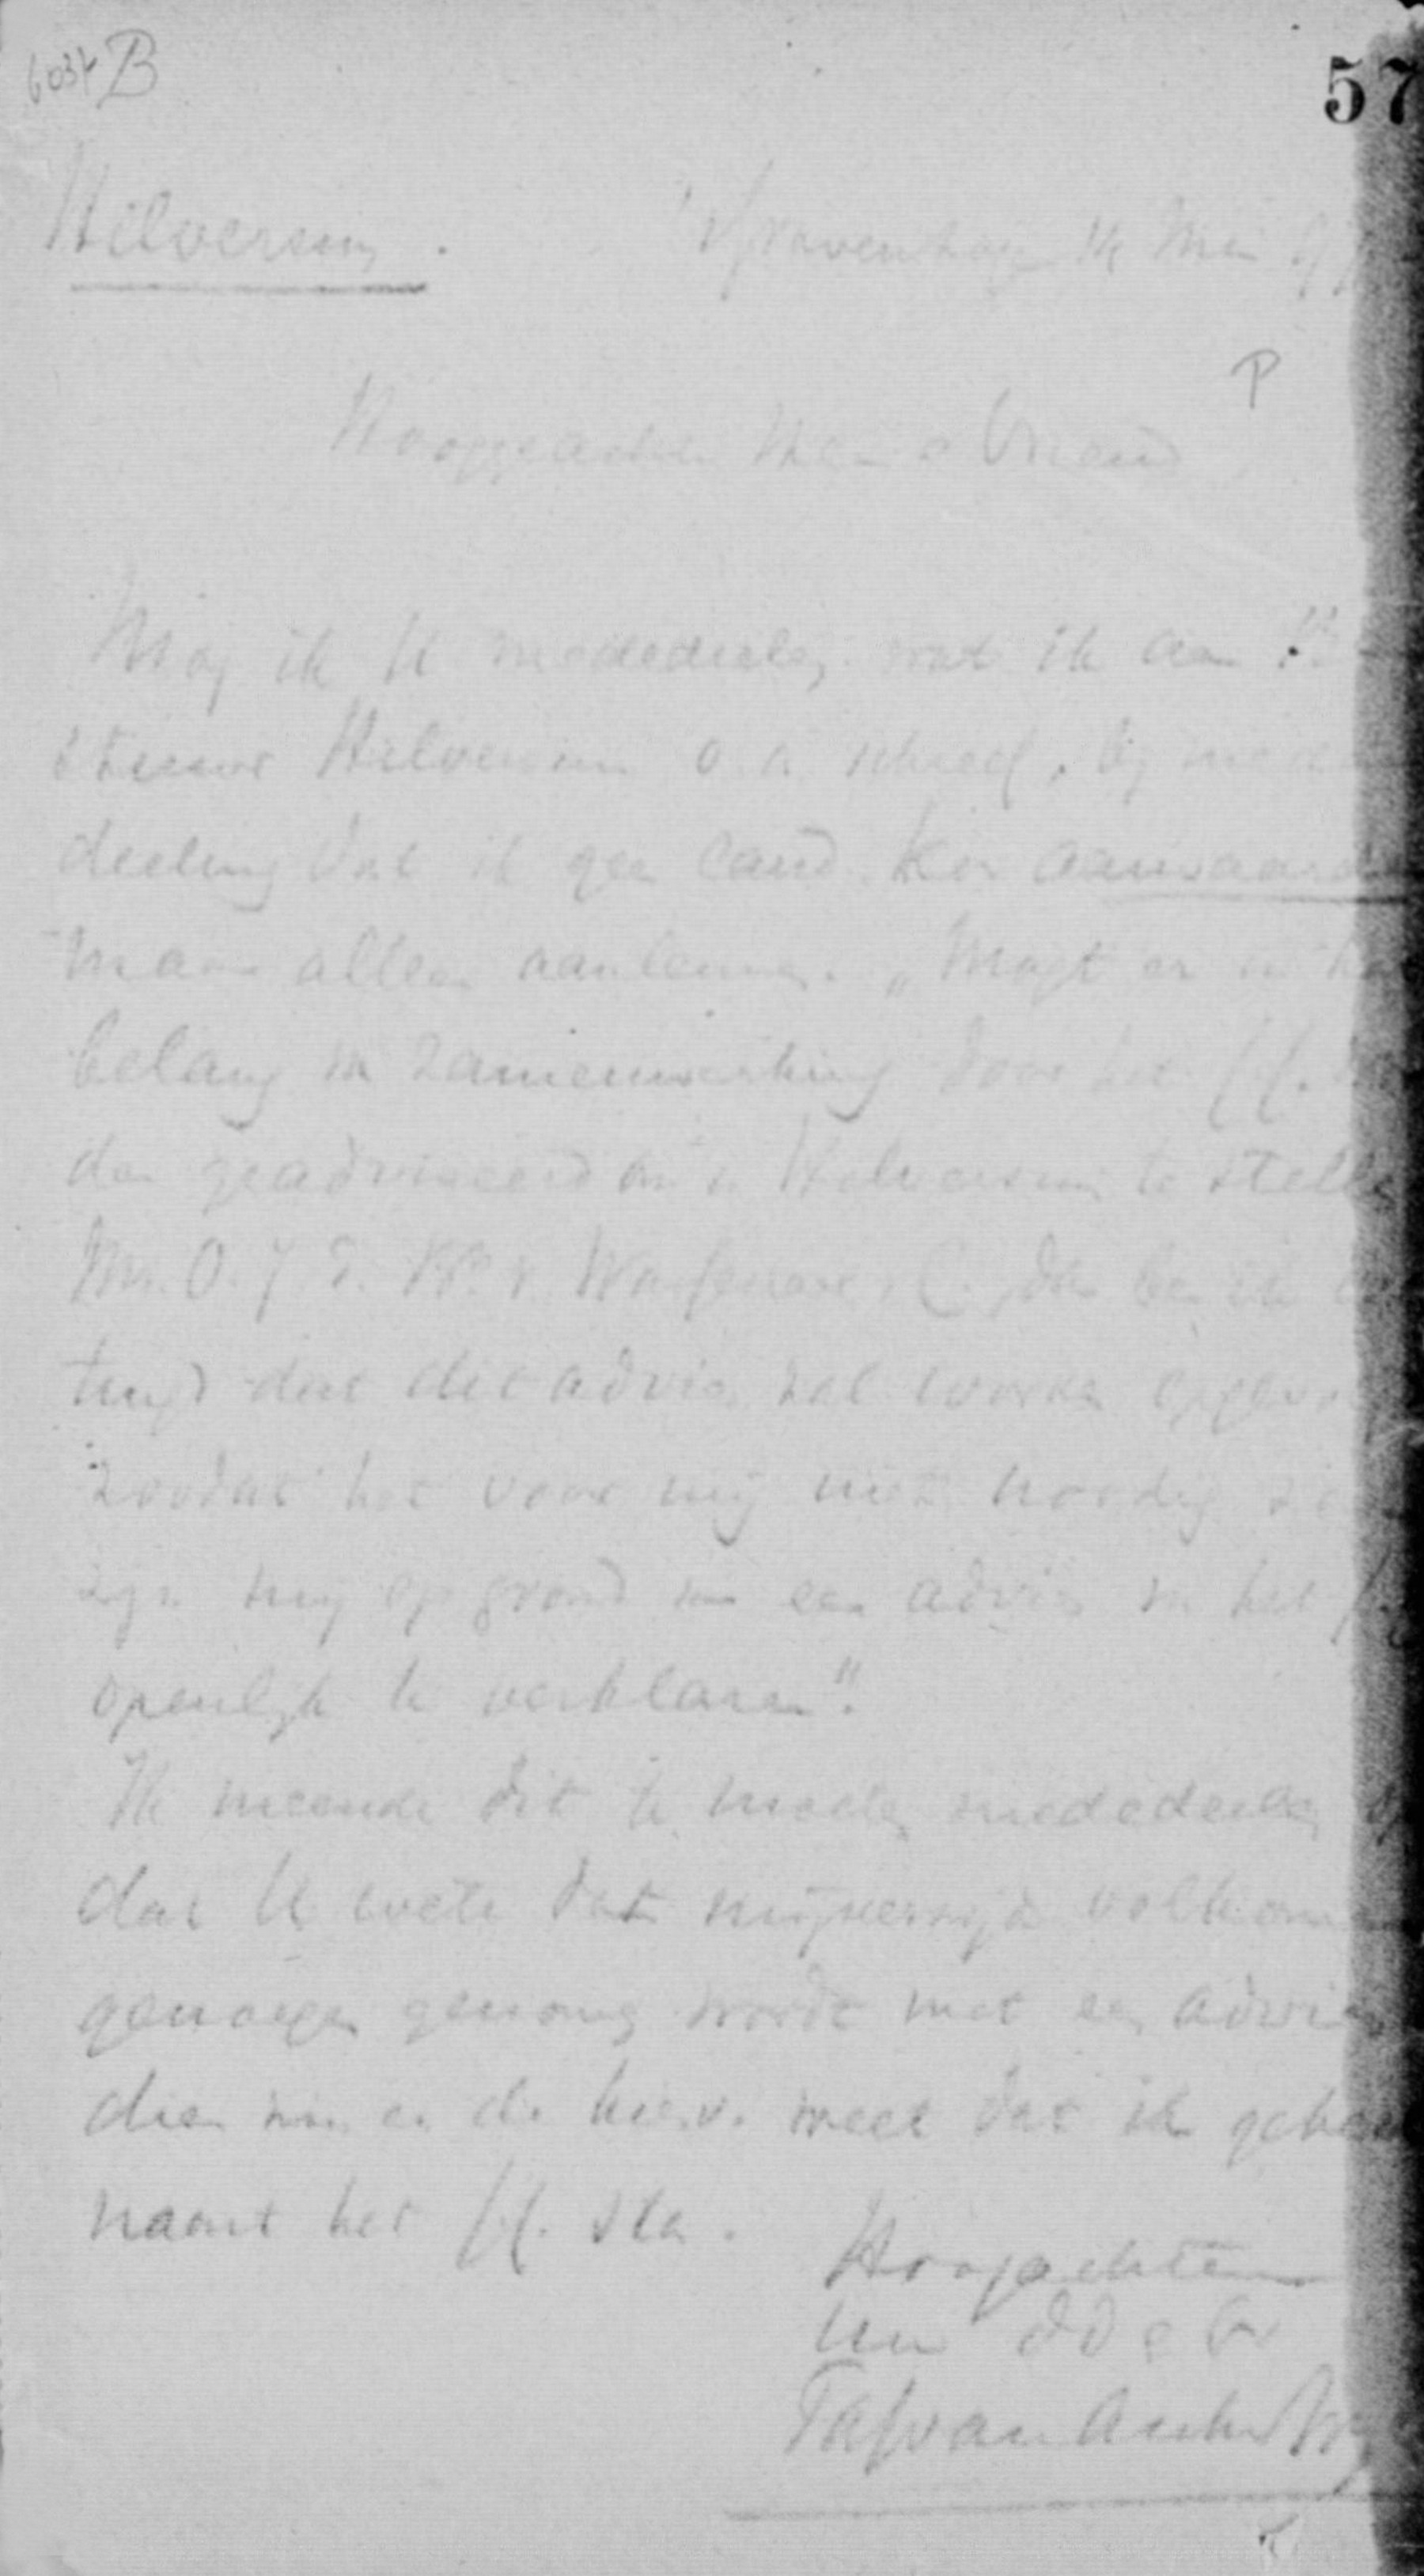 6037 B
57
Hilversum. 's Gravenhage 14 Mei 97
P
Hooggeachte Heer & Vriend
Mag ik U mededeelen wat ik aan 't B
stuur Hilversum o.a. schreef, bij mede
deeling dat ik geen cand. kon aanvaarden
maar alleen aanbevelen. „Mogt er in het
belang der zamenwerking door het
den geadviseerd om in Hilversum te stellen
Mr. O. J. E. Bn. v. Wassenaer v. C., dan ben ik over
tuigd dat dit advies zal worden opgevolgd
zoodat het voor mij niet noodig zou
zijn mij op grond van een advies van het
openlijk te verklaren".
Ik meende dit te moeten mededeelen op
dat U wete dat mijnerzijds volkomen
genoegen genomen wordt met een advies in
dien zin en de kiesv. weet dat ik geheel
naast het sta.
Hoogachtend
Uw dd & Vr